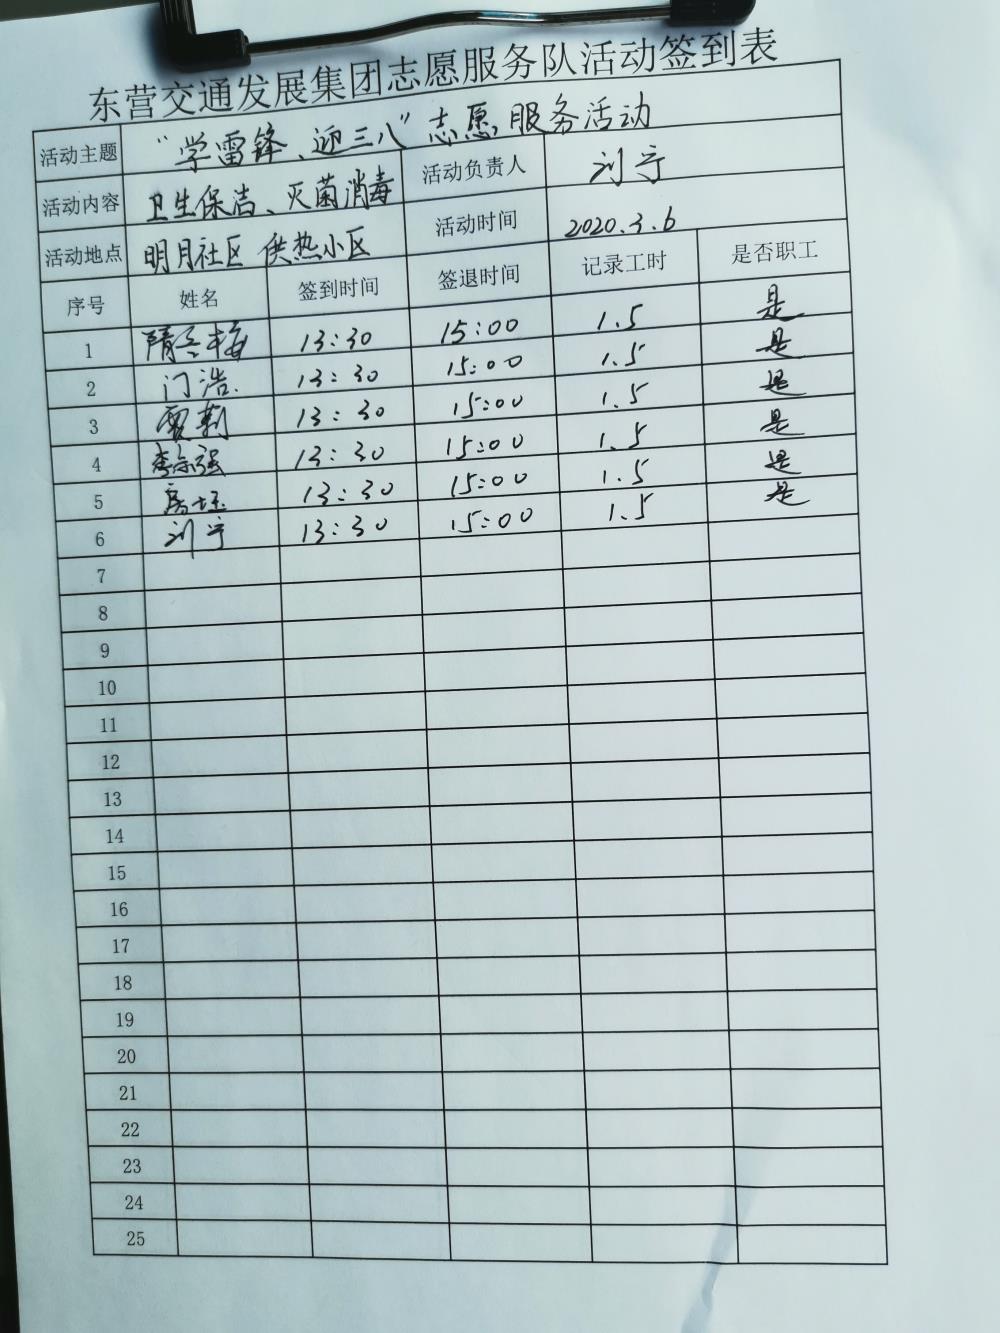 东营交通发展集团志愿服务队活动签到表
活动主题 “学雷锋、迎三八”志愿服务活动
活动内容 卫生保洁、灭菌消毒 活动负责人 刘宁
活动地点 明月社区 供热小区 活动时间 2020.3.6
序号 姓名 签到时间 签退时间 记录工时 是否职工
1 隋冬梅 13:30 15:00 1.5 是
2 门浩 13:30 15:00 1.5 是
3 13:30 15:00 1.5 是
4 13:30 15:00 1.5 是
5 13:30 15:00 1.5 是
6 刘宁 13:30 15:00 1.5 是
7
8
9
10
11
12
13
14
15
16
17
18
19
20
21
22
23
24
25